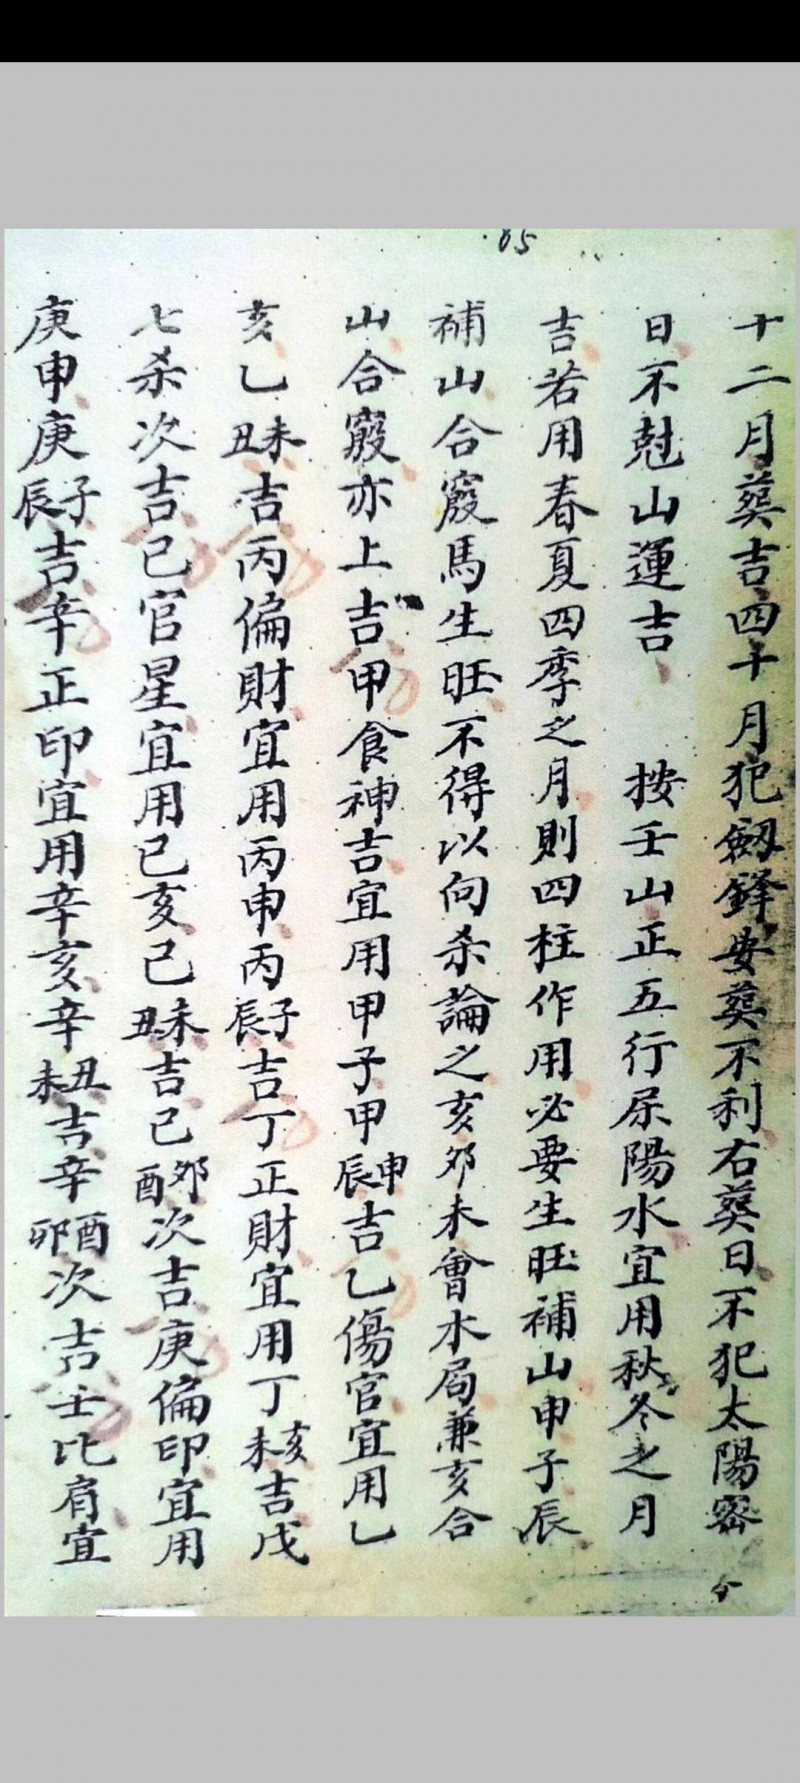 65
十二月葬吉四十月犯劔鋒安葬不利右葬日不犯太陽密
日不尅山運吉　按壬山正五行屬陽水宜用秋冬之月
吉若用春夏四季之月則四柱作用必要生旺補山申子辰
補山合馬生旺不得以向杀論之亥卯未會水局兼亥合
山合亦上吉甲食神吉宜用甲子甲申辰吉乙傷官宜用乙
亥乙未丑吉丙偏財宜用丙申丙子辰吉丁正財宜用丁亥未吉戊
七杀次吉己官星宜用己亥己未丑吉己卯酉次吉庚偏印宜用
庚申庚子辰吉辛正印宜用辛亥辛丑未吉辛酉卯次吉壬比肩宜